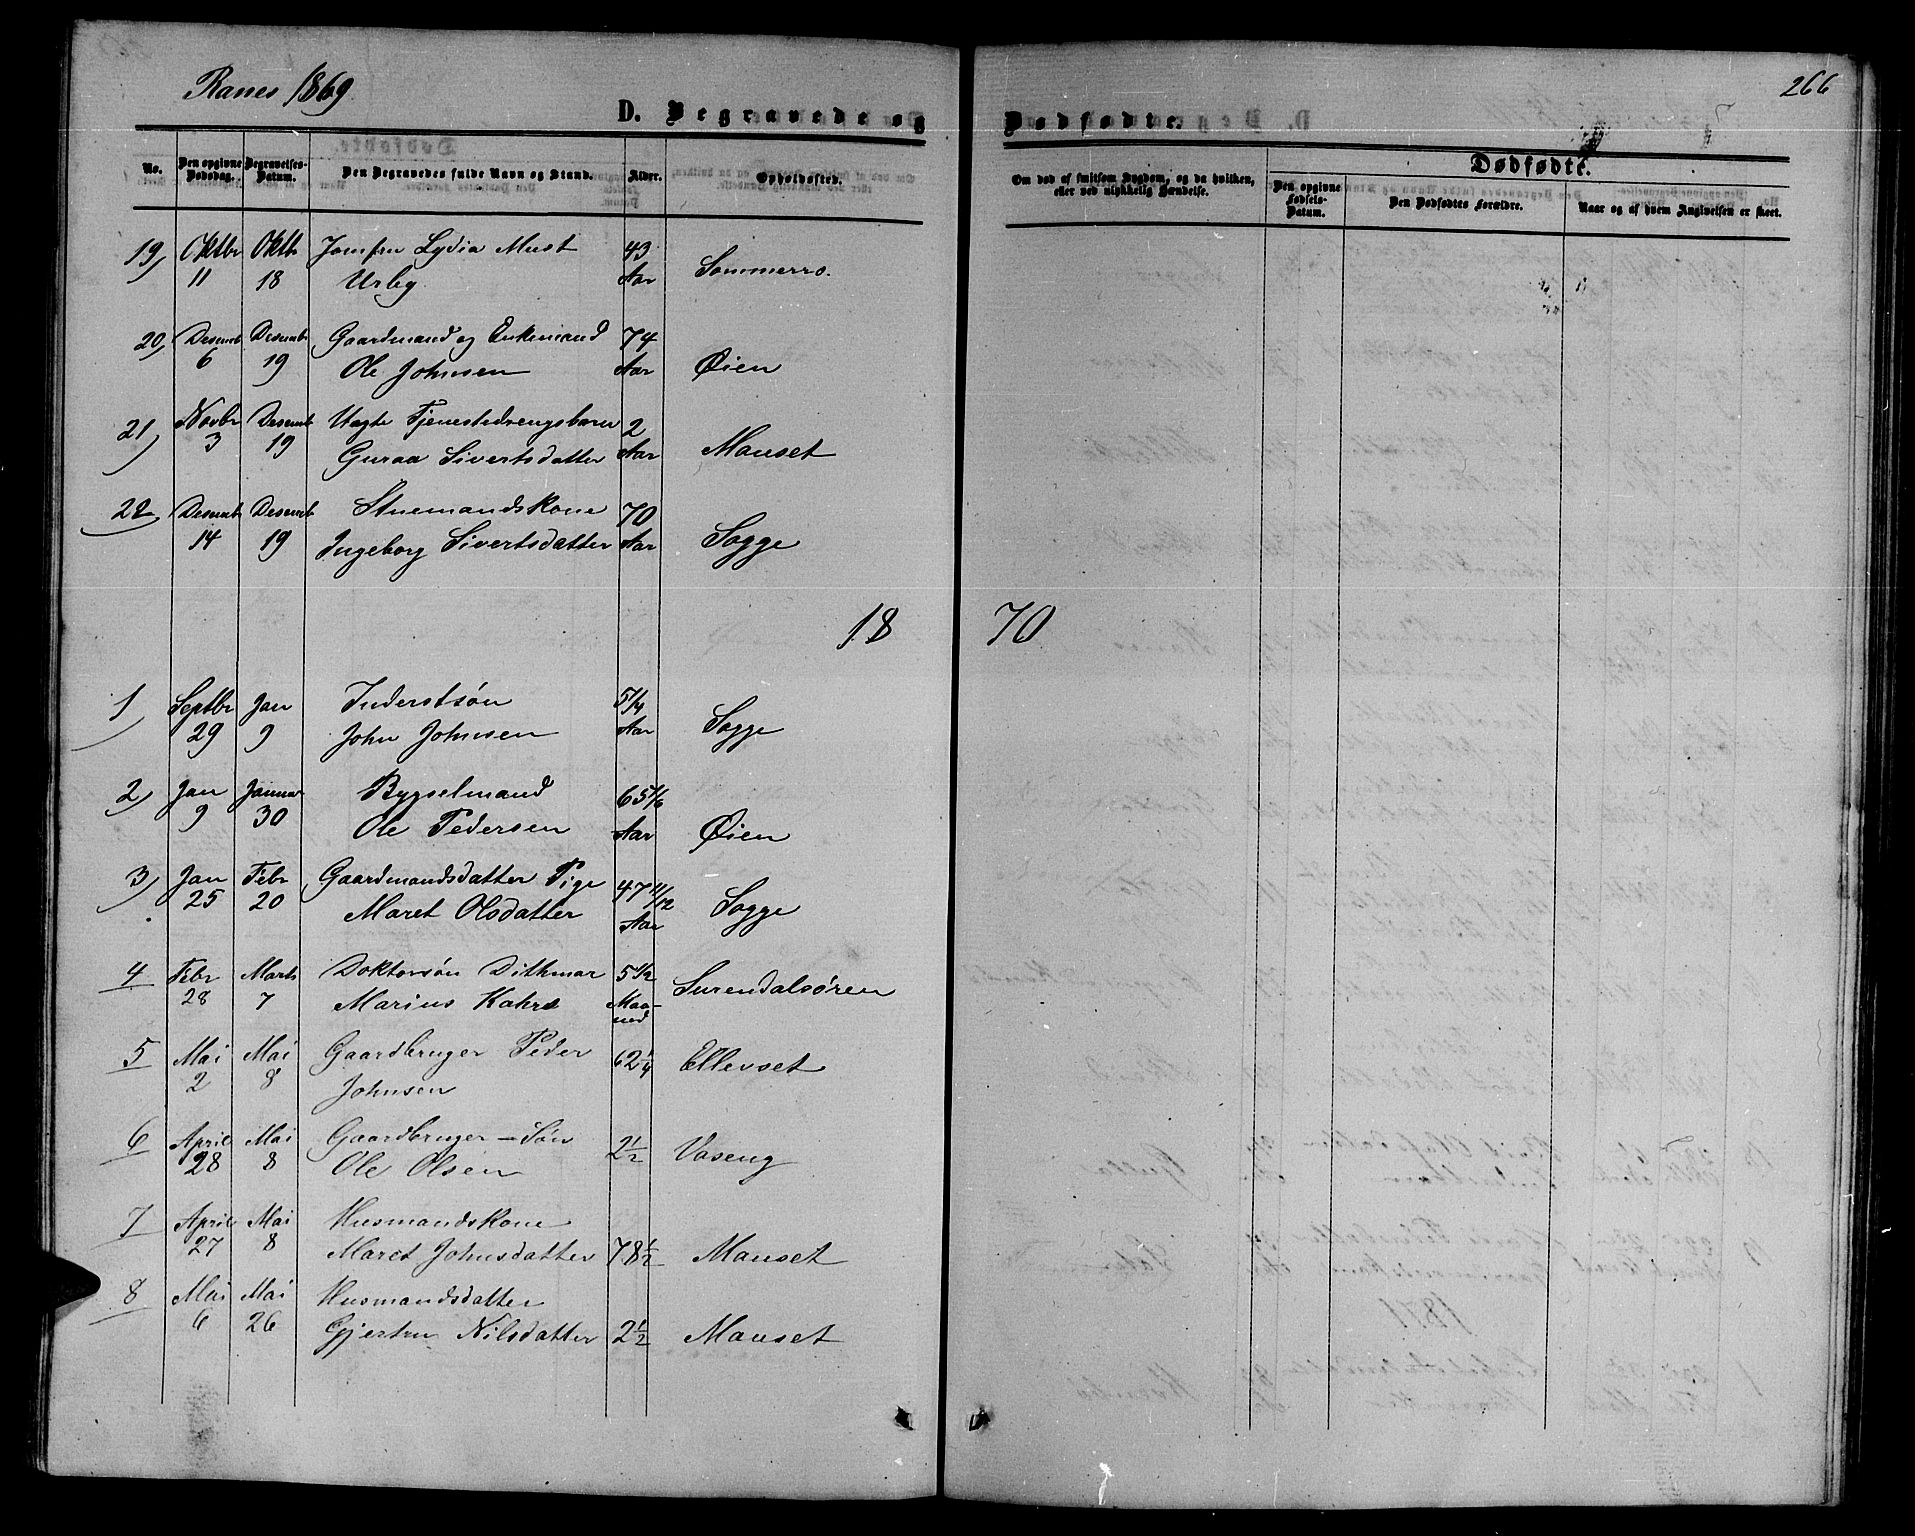 Ranes 1869
266
D. Begravede og Dødfødte.
No.
Den opgivne Dødsdag.
Begravelses-Datum.
Den Begravedes fulde Navn og Stand.
Alder.
Opholdssted.
Om død af smitsom Sygdom, og da hvilken, eller ved ulykkelig Hændelse.
Dødfødte.
Den opgivne Fødsels-Datum.
Den Dødfødtes Forældre.
Naar og af hvem Angivelsen er skeet.
19) Oktbr Oktb Jomfru Lydia Must 43
11 18 Urby Aar Sommerro.
20) Desemb Desemb Gaardmand og Enkemand 74
6 19 Ole Johnsen Aar Øien
21) Novbr Desemb Uægte Tjenestedrengsbarn 2
3 19 Guraa Sivertsdatter Aar Mauset
22 Desemb Desemb Stuemandskone 70
14 19 Ingeborg Sivertsdatter Aar Sogge
18 70
1) Septbr Jan Inderstsøn 5 1/4
29 9 John Johnsen Aar Sogge
2) Jan Januar Bygselmand 65 1/6
9 30 Ole Pedersen Aar Øien
3) Jan Febr Gaardmandsdatter Pige 47 11/12
25 20 Maret Olsdatter Aar Sogge
4 Febr Marts Doktorsøn Dithmar 5 1/2
28 7 Marius Kahrs Maa-
ned Surendalsøren
5 Mai Mai Gaardbruger Peder 62 1/4 Ellevset
2 8 Johnsen
6 April Mai Gaardbruger-Søn 2 1/2 Vaseng
28 8 Ole Olsen
7 April Mai Husmandskone
27 8 Maret Johnsdatter 78 1/2 Mauset
8 Mai Mai Husmandsdatter
6 26 Gjertru Nilsdatter 2 1/2 Mauset